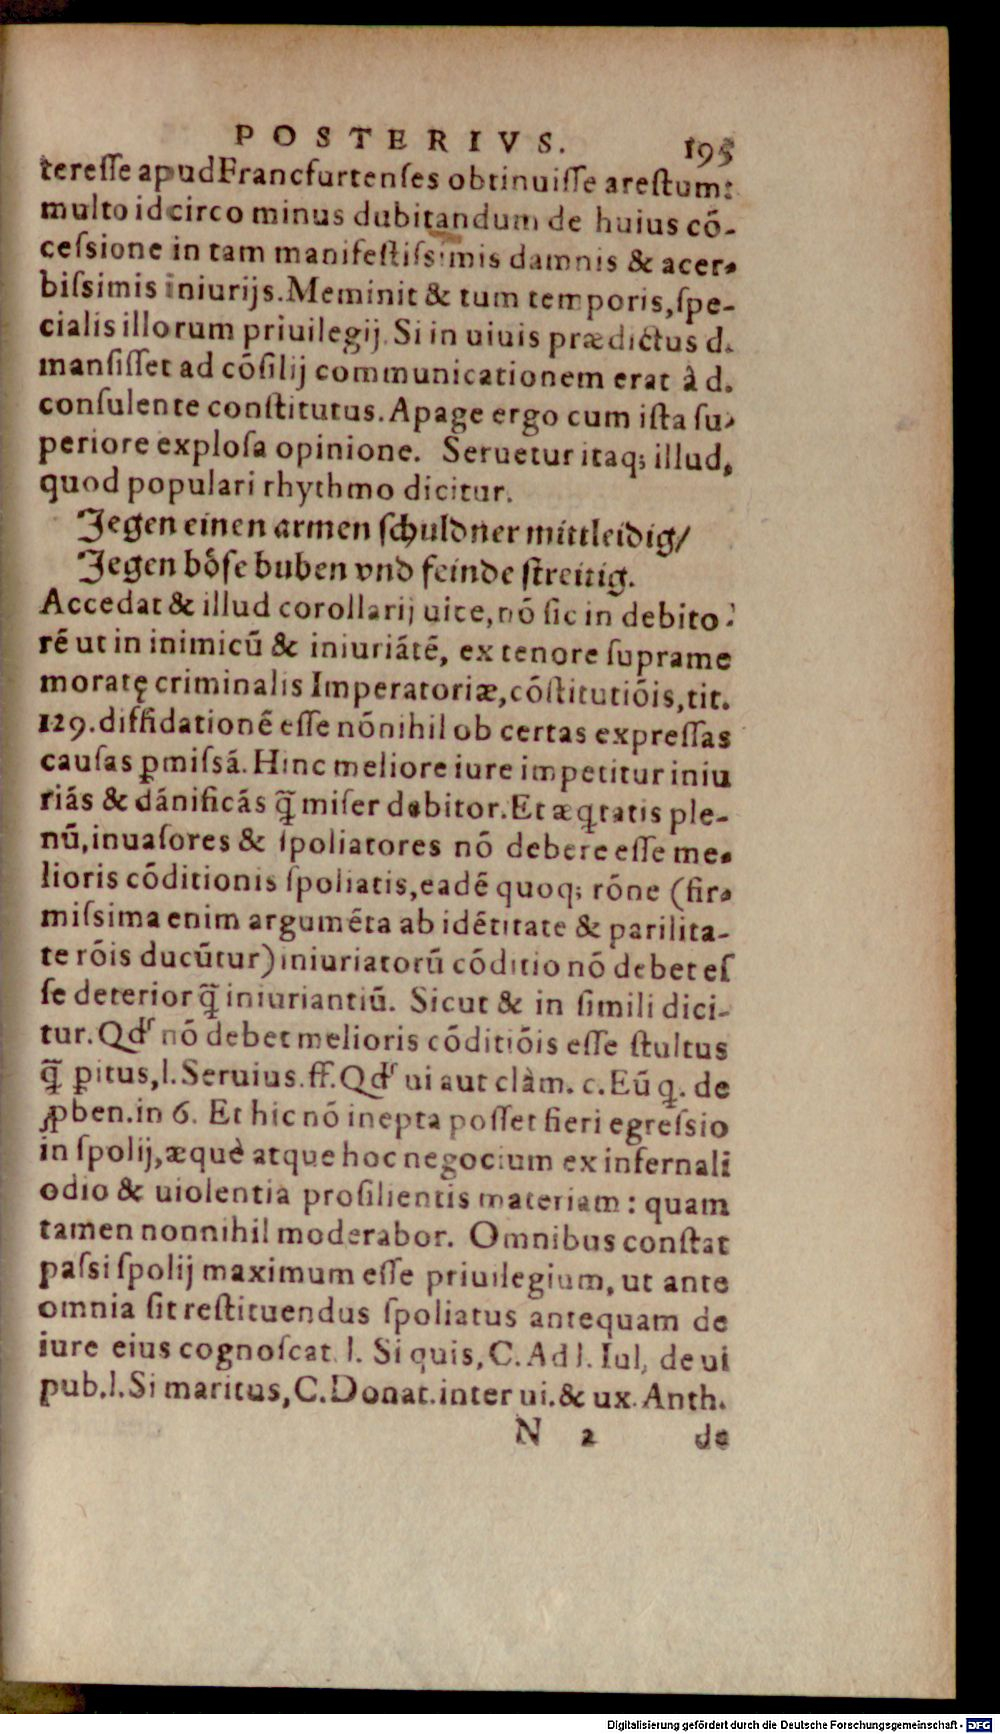 POSTERIVS. 195
tereſſe apud Francfurtenſes obtinuiſſe areſtum:
multo idcirco minus dubitandum de huius cõ-
ceſsione in tam manifeſtiſsimis damnis & acer-
biſsimis iniurijs. Meminit & tum temporis, ſpe-
cialis illorum priuilegij. Si in uiuis prædictus d.
manſiſſet ad cõſilij communicationem erat à d.
conſulente conſtitutus. Apage ergo cum iſta ſu-
periore exploſa opinione. Seruetur itaq; illud,
quod populari rhythmo dicitur.
Jegen einen armen ſchuldner mittleidig/
Jegen bőſe buben vnd feinde ſtreitig.
Accedat & illud corollarij uice, nõ ſic in debito-
rẽ ut in inimicũ & iniuriãtẽ, ex tenore ſuprame
moratę criminalis Imperatoriæ, cõſtitutiõis, tit.
129. diffidationẽ eſſe nõnihil ob certas expreſſas
cauſas ꝑmiſsã. Hinc meliore iure impetitur iniu
riãs & dãnificãs q̃ miſer debitor. Et æq̃tatis ple-
nũ, inuaſores & ſpoliatores nõ debere eſſe me-
lioris cõditionis ſpoliatis, eadẽ quoq; rõne (fir-
miſsima enim argumẽta ab idẽtitate & parilita-
te rõis ducũtur) iniuriatorũ cõditio nõ debet eſ
ſe deterior q̃ iniuriantiũ. Sicut & in ſimili dici-
tur. Qd' nõ debet melioris cõditiõis eſſe ſtultus
q̃ ꝑitus, l. Seruius. ff. Qd' ui aut clàm. c. Eũ q. de
ꝓben. in 6. Et hic nõ inepta poſſet fieri egreſsio
in ſpolij, æquè atque hoc negocium ex infernali
odio & uiolentia proſilientis materiam: quam
tamen nonnihil moderabor. Omnibus conſtat
paſsi ſpolij maximum eſſe priuilegium, ut ante
omnia ſit reſtituendus ſpoliatus antequam de
iure eius cognoſcat. l. Si quis, C. Ad l. Iul, de ui
pub. l. Si maritus, C. Donat. inter ui. & ux. Anth.
N 2 de
Digitalisierung gefördert durch die Deutsche Forschungsgemeinschaft - DFG